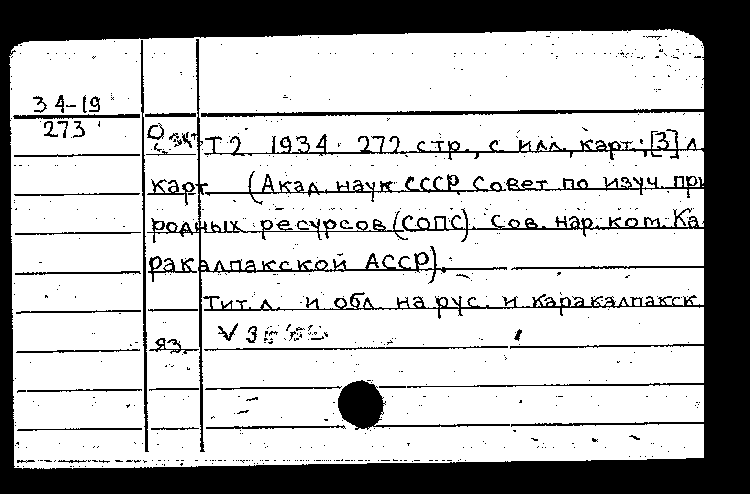 34-19
273
Т 2 1934. 272 стр., с илл., карт.; [3] л.
карт. (Акад. наук СССР. Совет по изуч. при
родных ресурсов (СОПС). Сов. нар. ком. Ка-
ракалпакской АССР).
Тит. л. и обл. на рус. и каракалпакск.
яз.